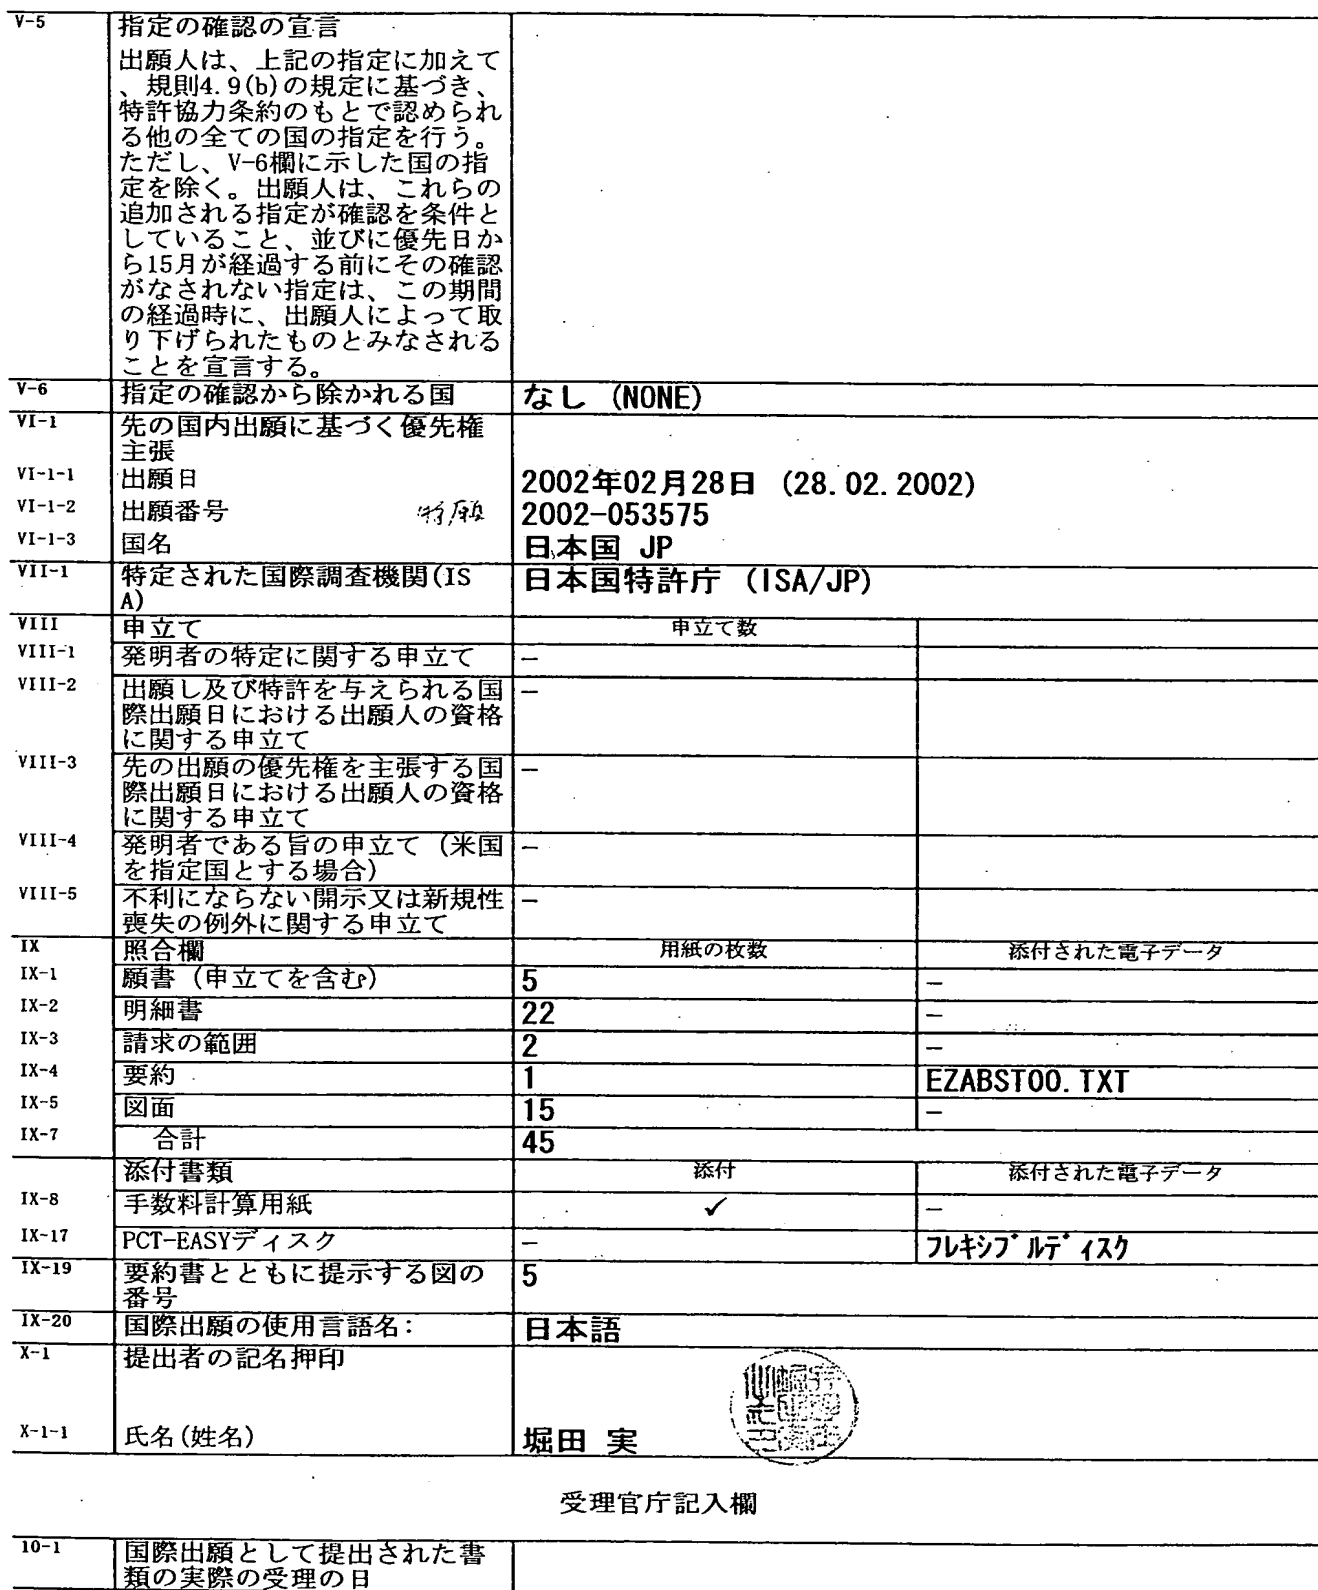 V-5 指定の確認の宣言
出願人は、上記の指定に加えて
、規則4.9(b)の規定に基づき、
特許協力条約のもとで認められ
る他の全ての国の指定を行う。
ただし、V-6欄に示した国の指
定を除く。出願人は、これらの
追加される指定が確認を条件と
していること、並びに優先日か
ら15月が経過する前にその確認
がなされない指定は、この期間
の経過時に、出願人によって取
り下げられたものとみなされる
ことを宣言する。
V-6 指定の確認から除かれる国 なし (NONE)
VI-1 先の国内出願に基づく優先権
主張
VI-1-1 出願日 2002年02月28日 (28.02.2002)
VI-1-2 出願番号 特願 2002-053575
VI-1-3 国名 日本国 JP
VII-1 特定された国際調査機関(IS
A) 日本国特許庁 (ISA/JP)
VIII 申立て 申立て数
VIII-1 発明者の特定に関する申立て –
VIII-2 出願し及び特許を与えられる国 –
際出願日における出願人の資格
に関する申立て
VIII-3 先の出願の優先権を主張する国 –
際出願日における出願人の資格
に関する申立て
VIII-4 発明者である旨の申立て (米国 –
を指定国とする場合)
VIII-5 不利にならない開示又は新規性 –
喪失の例外に関する申立て
IX 照合欄 用紙の枚数 添付された電子データ
IX-1 願書 (申立てを含む) 5 –
IX-2 明細書 22 –
IX-3 請求の範囲 2 –
IX-4 要約 1 EZABST00.TXT
IX-5 図面 15 –
IX-7 合計 45
添付書類 添付 添付された電子データ
IX-8 手数料計算用紙 ✓ –
IX-17 PCT-EASYディスク – フレキシブルディスク
IX-19 要約書とともに提示する図の 5
番号
IX-20 国際出願の使用言語名: 日本語
X-1 提出者の記名押印
X-1-1 氏名(姓名) 堀田 実
受理官庁記入欄
10-1 国際出願として提出された書
類の実際の受理の日